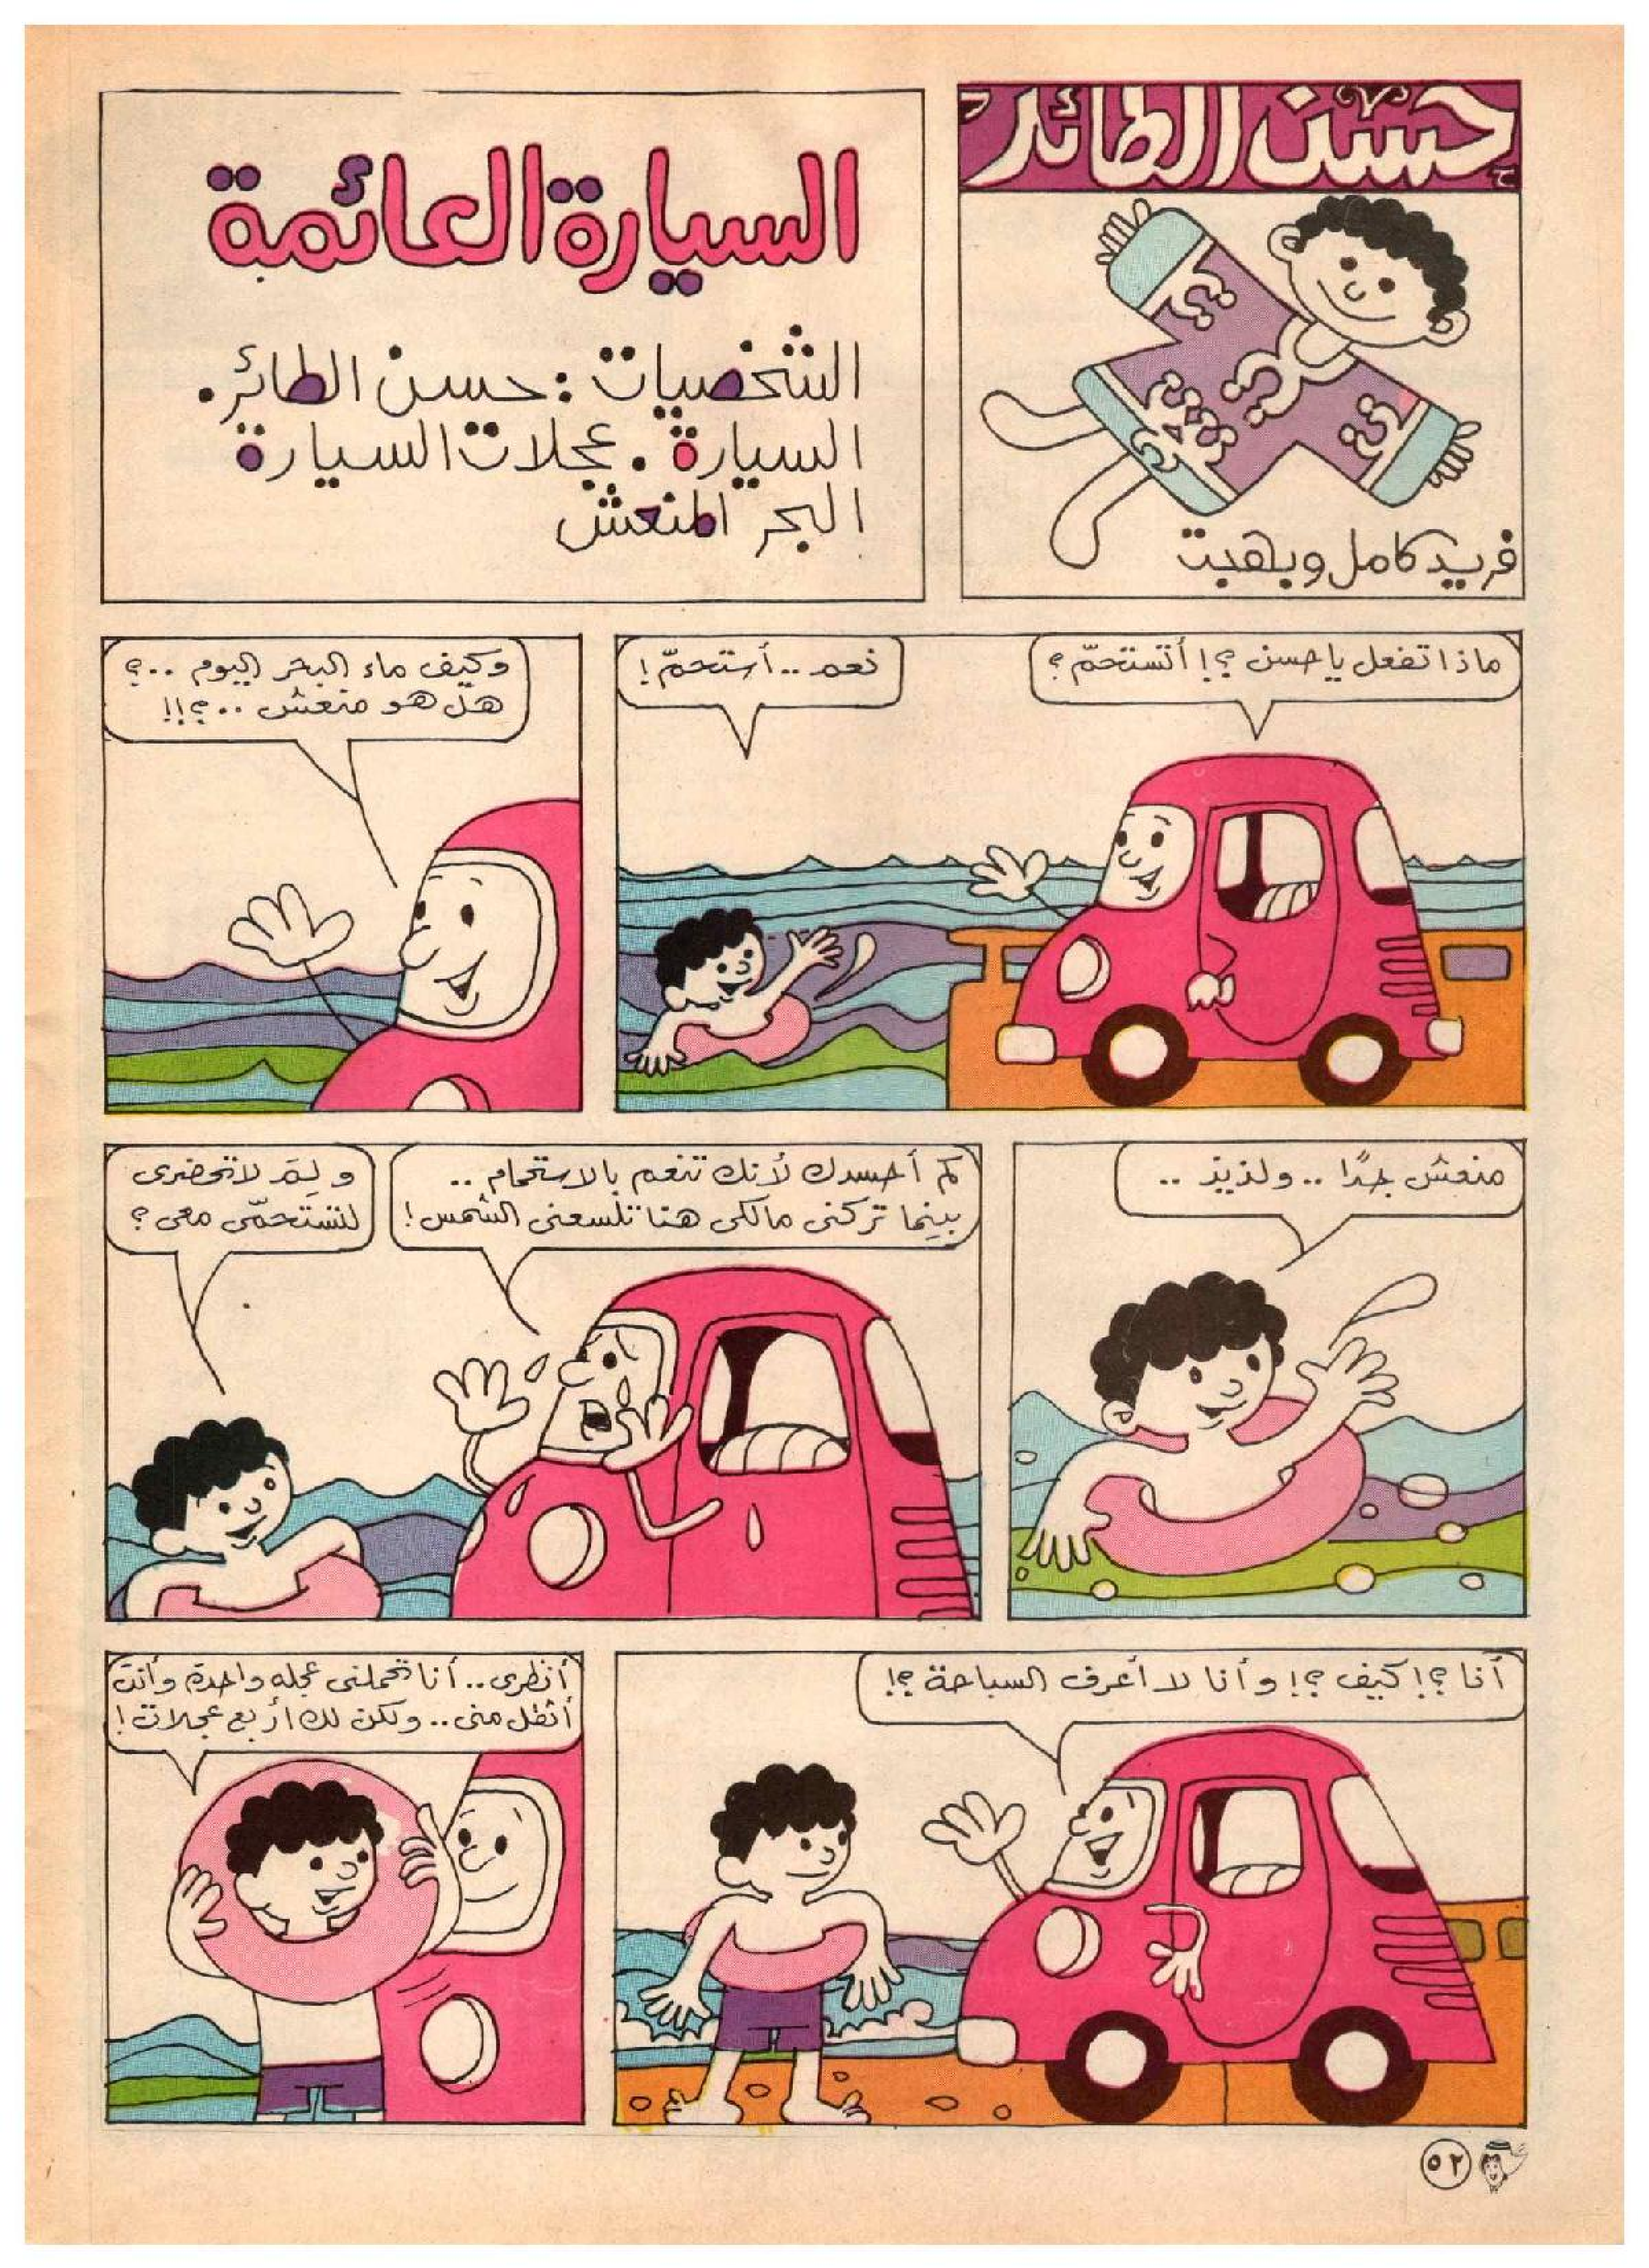 حسن الطائر
فريد كامل وبهجت
السيارة العائمة
الشخصيات : حسن الطائر .
السيارة . عجلات السيارة
البحر المنعش
ماذا تفعل يا حسن ؟! أتستحمّ ؟
نعم .. أستحمّ !
وكيف ماء البحر اليوم ..؟
هل هو منعش ..؟!!
منعش جدًا .. ولذيذ ..
كم أحسدك لأنك تنعم بالاستحمام ..
بينما تركنى مالكى هنا تلسعنى الشمس !
و لِمَ لا تحضرى
لتستحمّى معى ؟
أنا ؟! كيف ؟! و أنا لا أعرف السباحة ؟!
أنظرى .. أنا تحملنى عجله واحدة وأنت
أثقل منى .. ولكن لك أربع عجلات !
٥٢